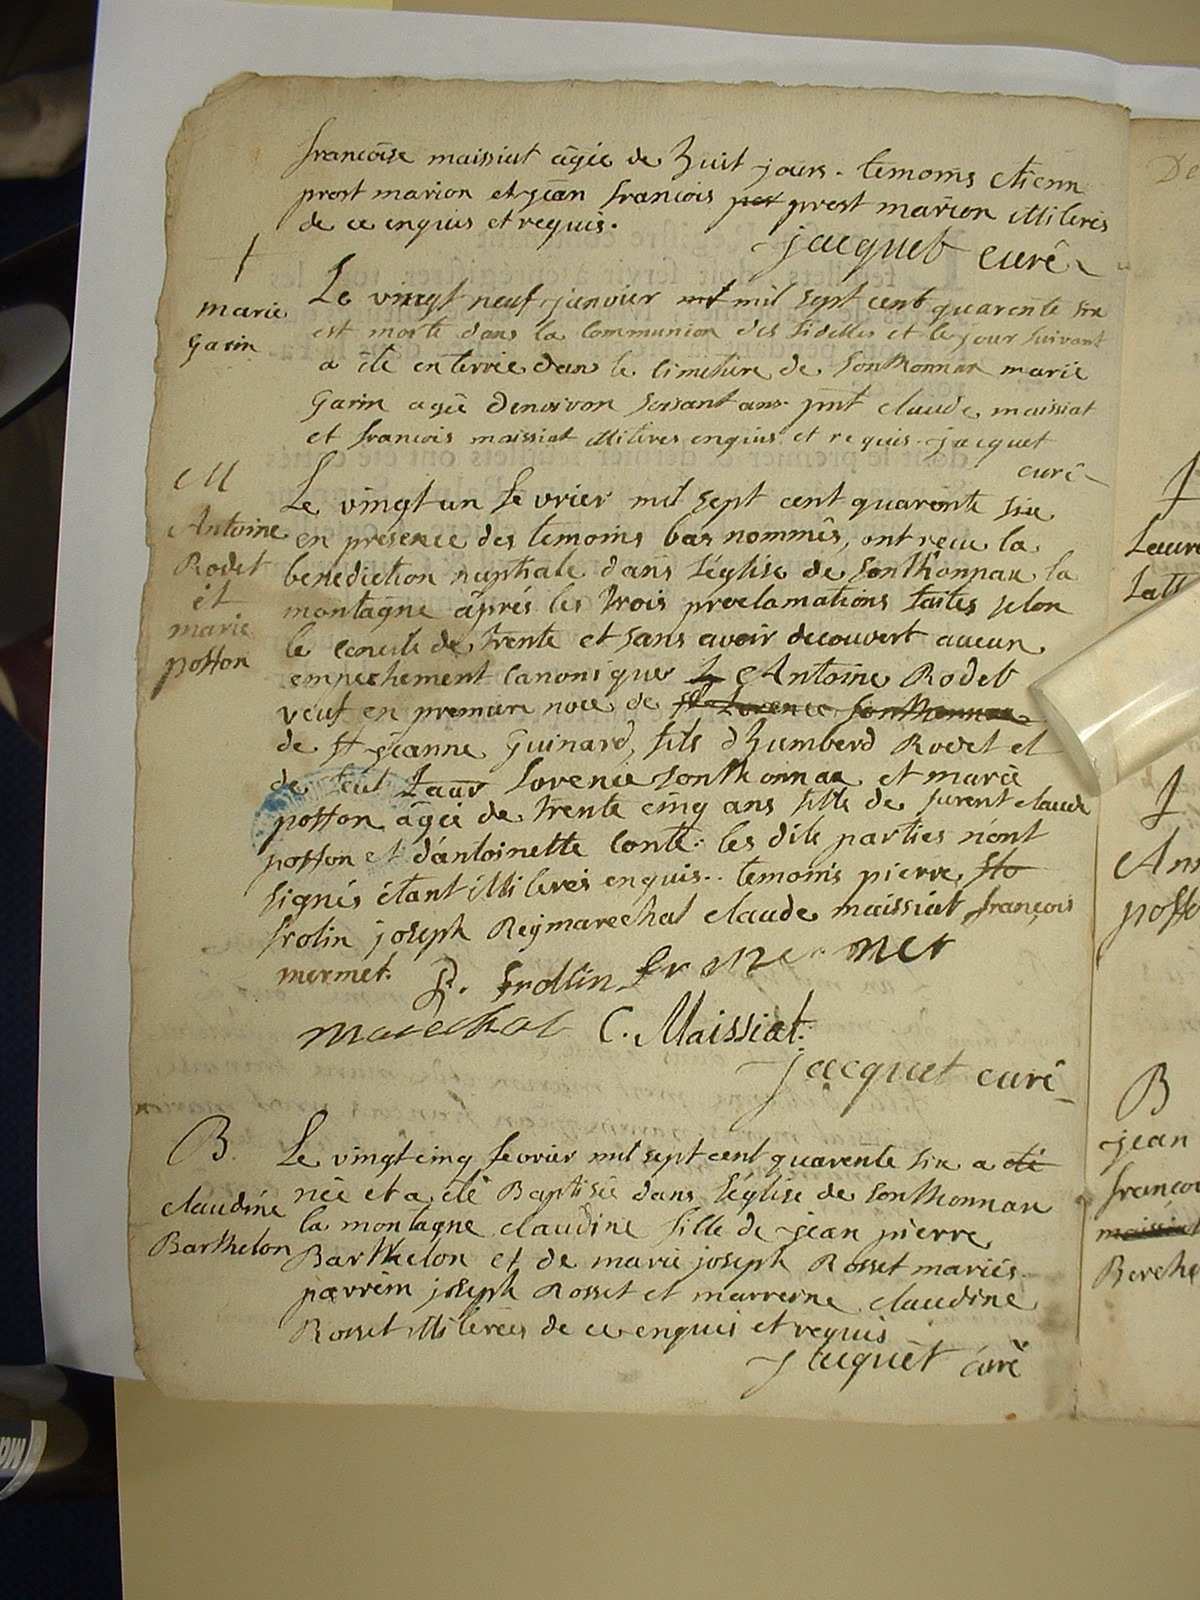 francoise maissiat âgée de huit jours. temoins etienn
prost marion et jean francois prost marion illiterés
de ce enquis et requis.
jacquet curé
marie
Garin
Le vingt neuf janvier mil sept cent quarente six
est morte dans la Communion des fidelles et le jour suivant
a été enterrée dans le Cimetiere de Sonthonnax marie
Garin agée denviron soixant ans. pnt claude maissiat
et francois maissiat illiteres enquis et requis. jacquet
curé
M
Antoine
Rodet
et
marie
posson
Le vingt un fevrier mil sept cent quarente six
en présence des temoins bas nommés, ont reçu la
benediction nuptiale dans l'église de Sonthonnax la
montagne après les trois proclamations faites selon
le concile de trente et sans avoir decouvert aucun
empechement canonique Antoine Rodet
veuf en premiere noce de Lorence Sonthonnax
de jeanne Guinard, fils d'humberd Rodet et
de feut Lorence Sonthonnax et marie
posson agée de trente cinq ans fille de furent claude
posson et d'antoinette Conte: les dits parties n'ont
signés étant illiterés enquis.. temoins pierre
frolin joseph Rey marechal claude maissiat françois
mermet. P. frollin fr mermet
marechal C. Maissiat.
jacquet curé
B.
claudine
Barthelon
Le vingt cinq fevrier mil sept cent quarente six a été
née et a été Baptisée dans l'église de Sonthonnax
la montagne claudine fille de jean pierre
Barthelon et de marie joseph Rosset mariés
parrein joseph Rosset et marreine claudine
Rosset illiterées de ce enquis et requis
jacquet curé
De
Ant
poss
B
jean
françoi
maissiat
Berche